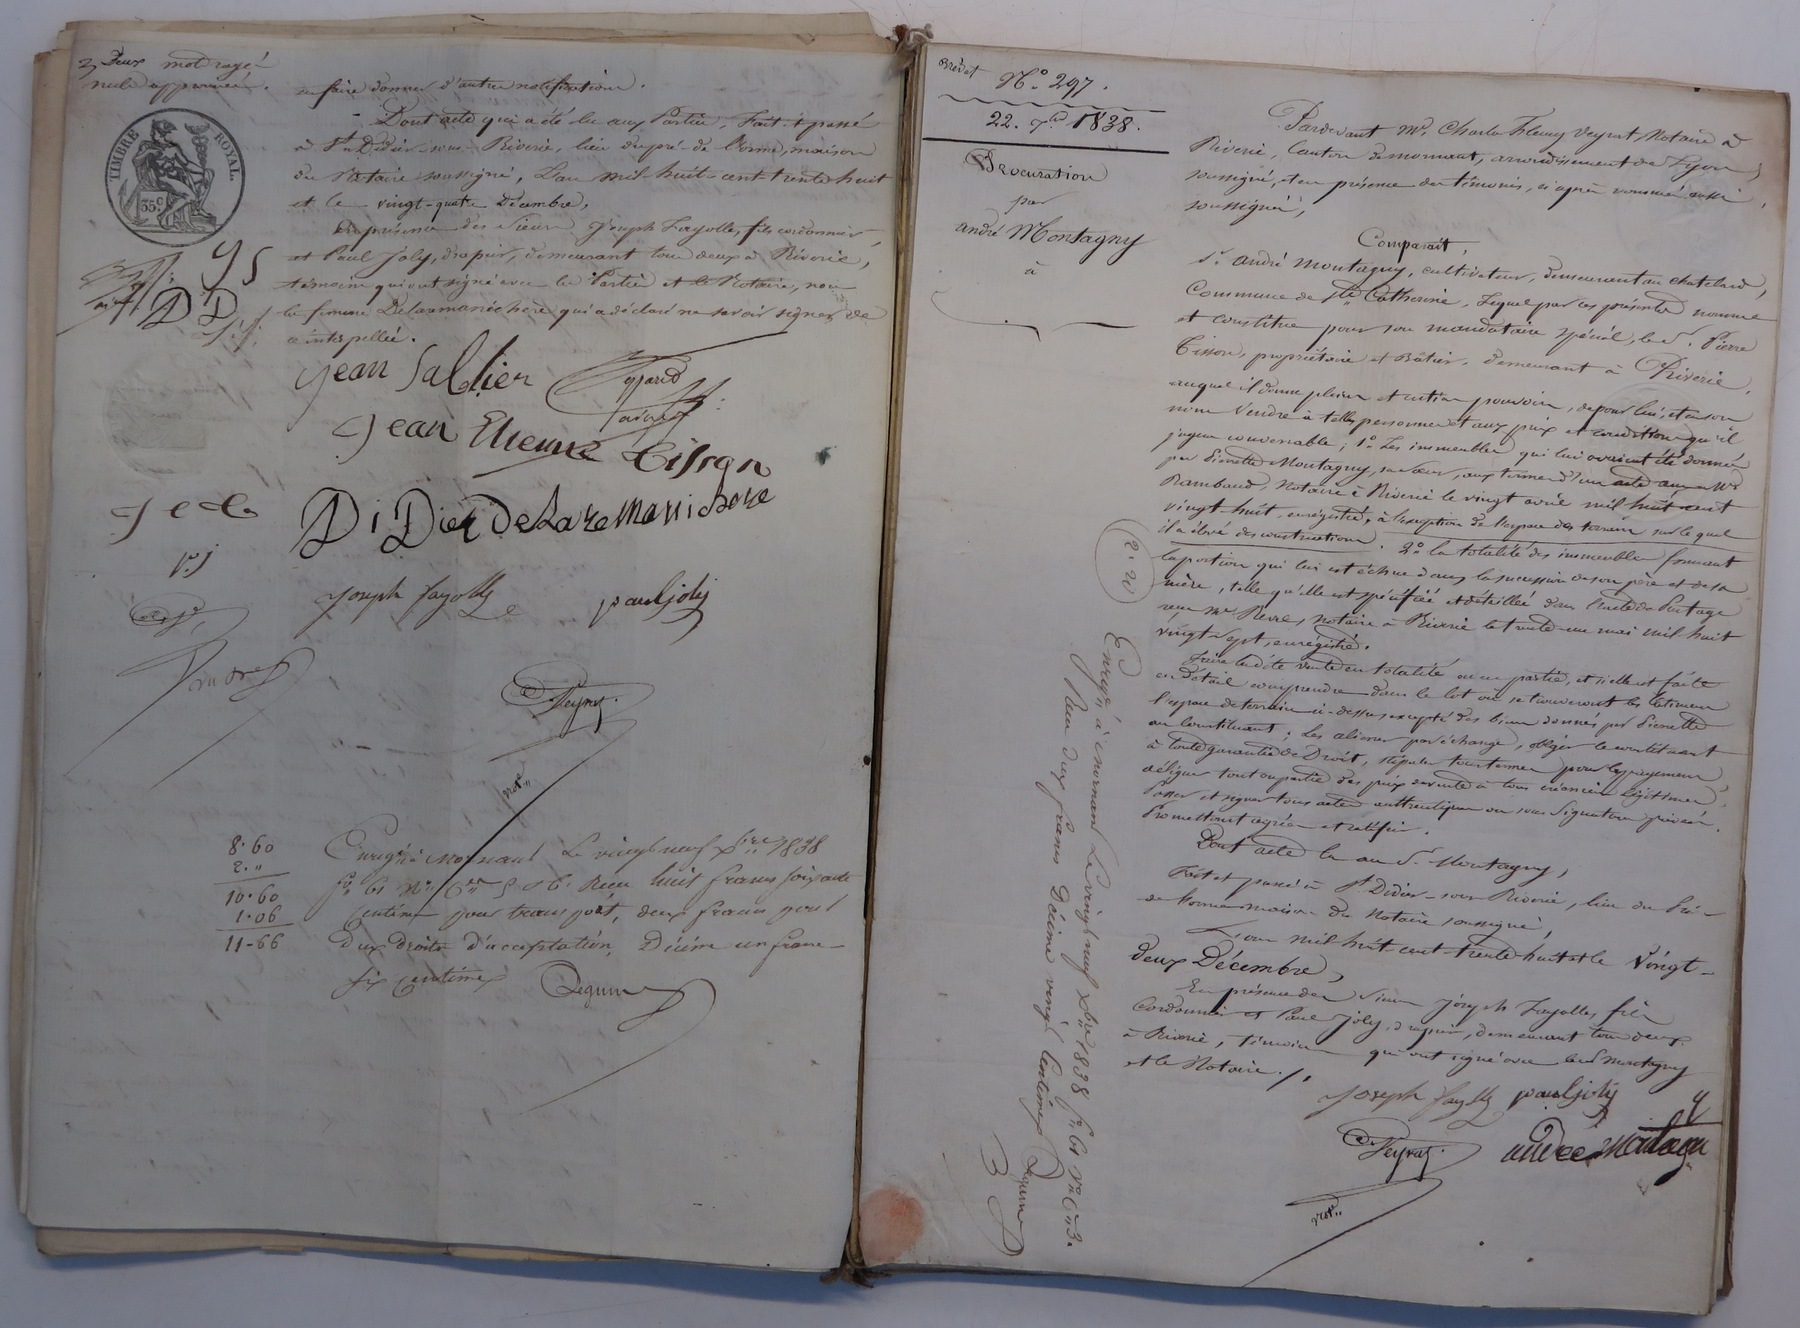 Deux mots rayés
nuls approuvés.
en faire donner d'autre notification.
Dont acte qui a été lu aux Parties, Fait & passé
à St Didier-sous-Riverie, lieu du pré de l'orme, maison
du Notaire soussigné, L'an mil-huit-cent-trente huit
et le vingt-quatre Décembre,
En présence des Sieurs Joseph Fayolle, fils cordonnier,
et Paul Joly, drapier, demeurant tous deux à Riverie,
témoins qui ont signé avec les Parties et le Notaire, non
la femme Delaremanichère qui a déclaré ne savoir signer de
ce interpellée.
TIMBRE ROYAL.
35c
Jean Sallier
Jean Etienne Cisson
Didier Delaremanichere
Joseph fayolle
paul joly
Peyrat
not.
8.60
2."
10.60
1.06
11-66
Enregistré à Mornant Le vingt neuf Xbre 1838
fo 61 Ro Cen 5 & 6. Reçu huit francs soixante
Centimes pour transport, deux francs pour
deux droits d'acceptation, Décime un franc
six centimes
Brevet
No 297.
22. Xbre 1838.
Procuration
par
andré Montagny
à
Pardevant Me. Charles Fleury Peyrat Notaire à
Riverie, Canton de mornant, arrondissement de Lyon,
soussigné, et en présence des témoins, ci-après nommés aussi
soussignés,
Comparaît,
Sr. andré Montagny, cultivateur, demeurant au chatelard,
Commune de Ste Catherine, Lequel par ces présentes nomme
et constitue pour son mandataire spécial, le Sr. Pierre
Cisson, propriétaire et Bâtier, demeurant à Riverie,
auquel il donne plein et entier pouvoir, de pour lui, et en son
nom Vendre à telles personnes et aux prix et conditions qu'il
jugera convenable; 1o. Les immeubles qui lui avaient été donnés
par Pierrette Montagny, sa sœur, aux termes d'un acte aux Me
Rambaud, Notaire à Riverie le vingt avril mil huit cent
vingt-huit, enrégistré, à l'exception de l'espace de terrain sur le quel
il a élevé des constructions. 2o. la totalité des immeubles formant
la portion qui lui est échue dans la succession de son père et de sa
mère, telle qu'elle est spécifiée et détaillée dans l'acte de Partage
reçu Me Revre, notaire à Riverie le trente-un mai mil huit
vingt-sept, enrégistré.
Faire ladite vente en totalité ou en partie, et si elle est faite
en détail comprendre dans le lot où se trouveront les bâtimens
l'espace de terrain ci-dessus excepté des biens donnés par Pierrette
au Constituant; Les aliéner par échange, obliger le constituant
à toute garantie de Droit, stipuler tous termes pour le payement
déléguer tout ou partie des prix de vente à tous créanciers légitimes,
Passer et signer tous actes authentiques ou sous Signature privées,
Promettant agréer et ratifier.
Dont acte lu au Sr. Montagny,
Fait et passé à St. Didier-sous Riverie, lieu du Pré-
de l'orme maison du Notaire soussigné,
L'an mil huit-cent-trente-huit et le Vingt-
deux Décembre,
En présence des Sieurs Joseph Fayolle, fils
Cordonnier et Paul Joly, drapier, demeurant tous deux
à Riverie, témoins qui ont signé avec led. Montagny
et le Notaire./.
Joseph fayolle paul joly
Peyrat. andré montagni
not.
2.20
Enregistré à mornant Le vingt neuf Xbre 1838 fo 61 Vo Cen 3.
Reçu deux francs Décime vingt Centimes